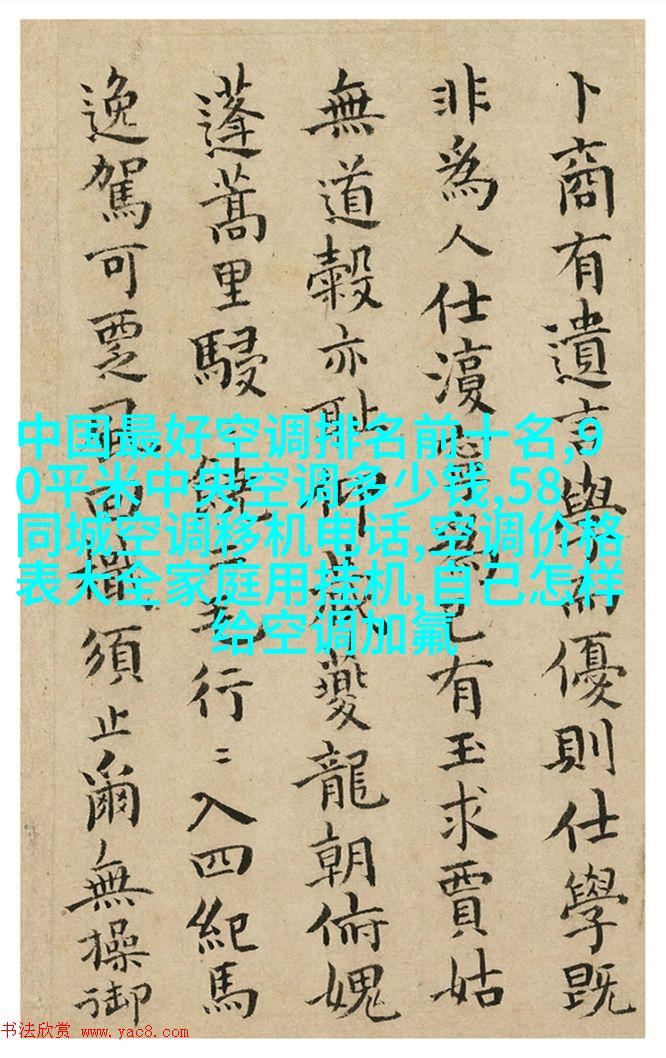 卜商有遺言學而優則仕學既
非為人仕湏為己有玉求賈姑
無道穀亦恥仰夔龍朝俯媿
蓬蒿里駸行〻入四紀馬
逸駕可覂須止爾無操御
中国最好空调排名前十名,9
0平米中央空调多少钱,58
同城空调移机电话,空调价格
表大全家庭用挂机,自己怎样
给空调加氟
书法欣赏 www.yac8.com